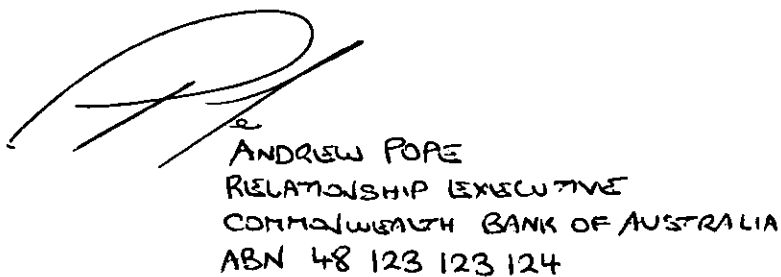 ANDREW POPE
RELATIONSHIP EXECUTIVE
COMMONWEALTH BANK OF AUSTRALIA
ABN 48 123 123 124